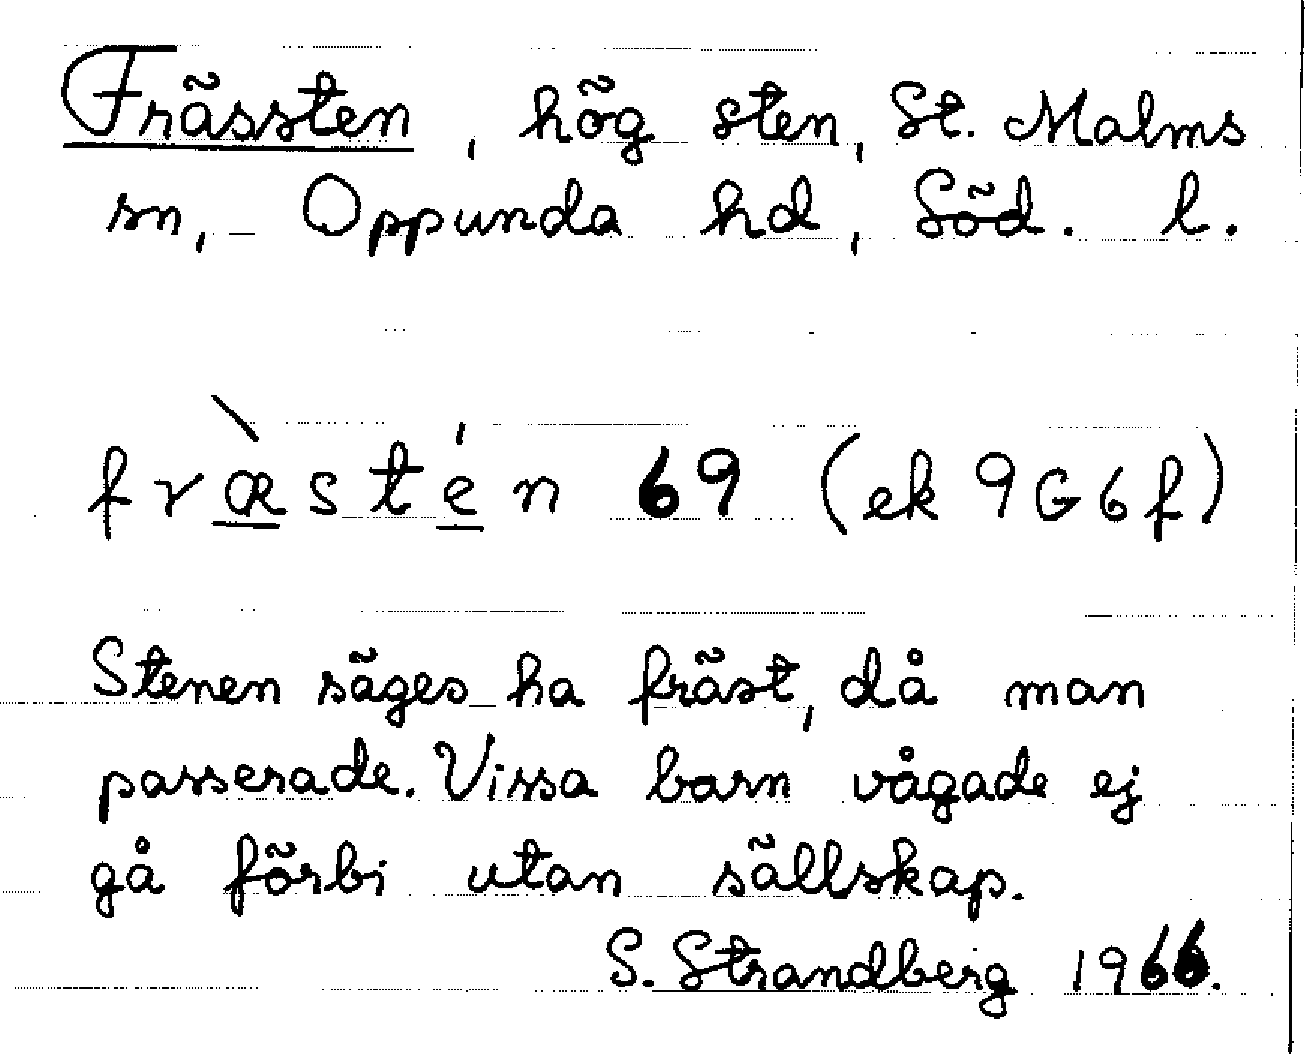 Frässten, hög sten, St. Malms
sn, Oppunda hd, Söd. l.
fræ̀stén 69 (ek 9G6f)
Stenen säges ha fräst, då man
passerade. Vissa barn vågade ej
gå förbi utan sällskap.
S. Strandberg 1966.